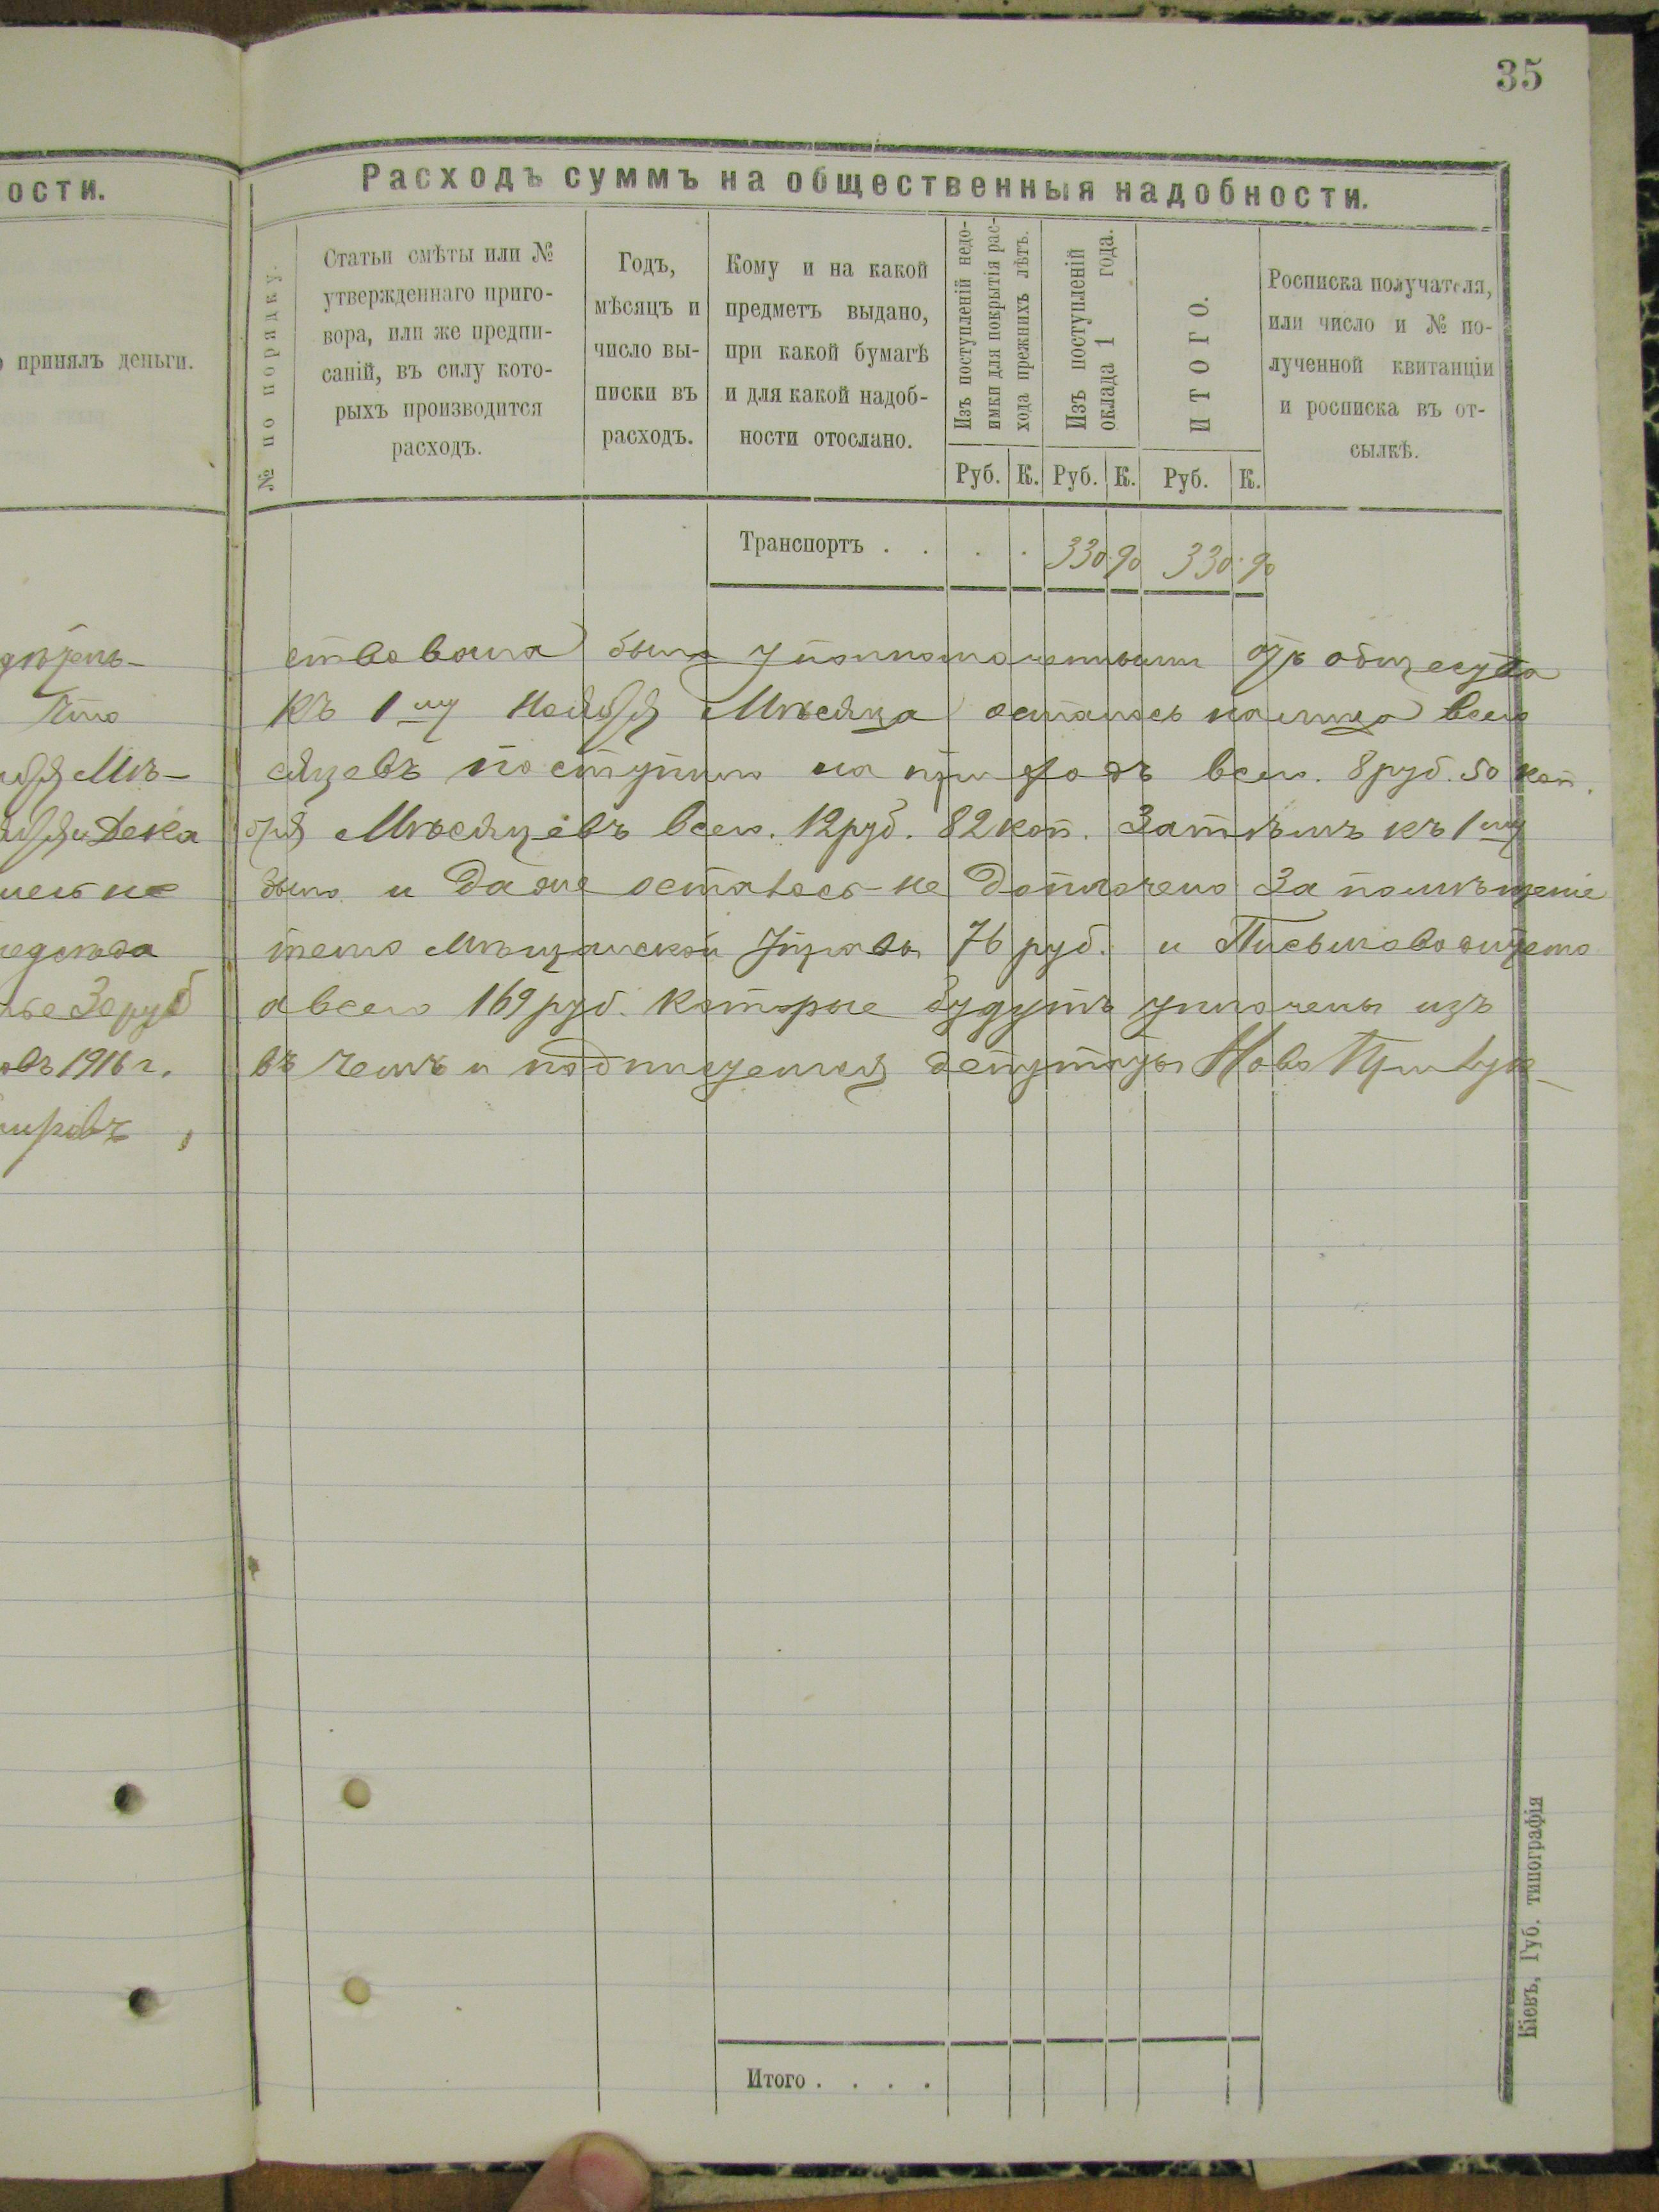 35
ости.
о принялъ деньги.
Расходъ суммъ на общественныя надобности.
№ по порядку.
Статьи смѣты или №
утвержденнаго приго-
вора, или же предпи-
саній, въ силу кото-
рыхъ производится
расходъ.
Годъ,
мѣсяцъ и
число вы-
писки въ
расходъ.
Кому и на какой
предметъ выдано,
при какой бумагѣ
и для какой надоб-
ности отослано.
Изъ поступленій недо-
имки для покрытія рас-
хода прежнихъ лѣтъ.
Изъ поступленій
оклада 1 года.
ИТОГО.
Росписка получателя,
или число и № по-
лученной квитанціи
и росписка въ от-
сылкѣ.
Руб. К. Руб. К. Руб. К.
Транспортъ . . . . 330 90 330 90
ствована была уполномоченными отъ общества
Что къ 1му Ноября Мѣсяца осталось на лицо всего
ября Мѣ- сяцевъ поступило на приходъ всего. 8 руб. 50 коп.
Дека бря Мѣсяцевъ всего. 12 руб. 82 коп. Затѣмъ къ 1му
не было и даже осталось не доплачено за помѣщеніе
Мѣщанской Управы 76 руб. и
30 руб а всего 169 руб. которые будутъ уплочены изъ
1916 г. въ чемъ и подпишемся депутаты Ново
Итого . . . .
Кіевъ, Губ. типографія